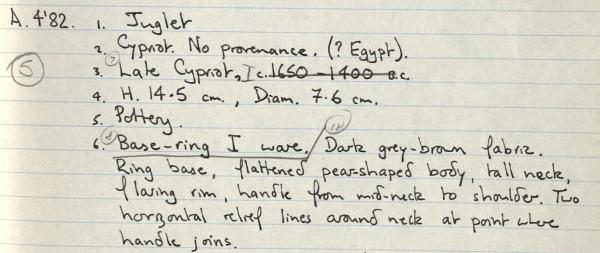 A. 4'82. 1. Juglet
2. Cypriot. No provenance. (? Egypt).
5 3. Late Cypriot, I c. 1650 - 1400 B.C
4. H. 14.5 cm., Diam. 7.6 cm.
5. Pottery.
6. Base-ring I ware. Dark grey-brown fabric.
Ring base, flattened pear-shaped body, tall neck,
flaring rim, handle from mid-neck to shoulder. Two
horizontal relief lines around neck at point where
handle joins.